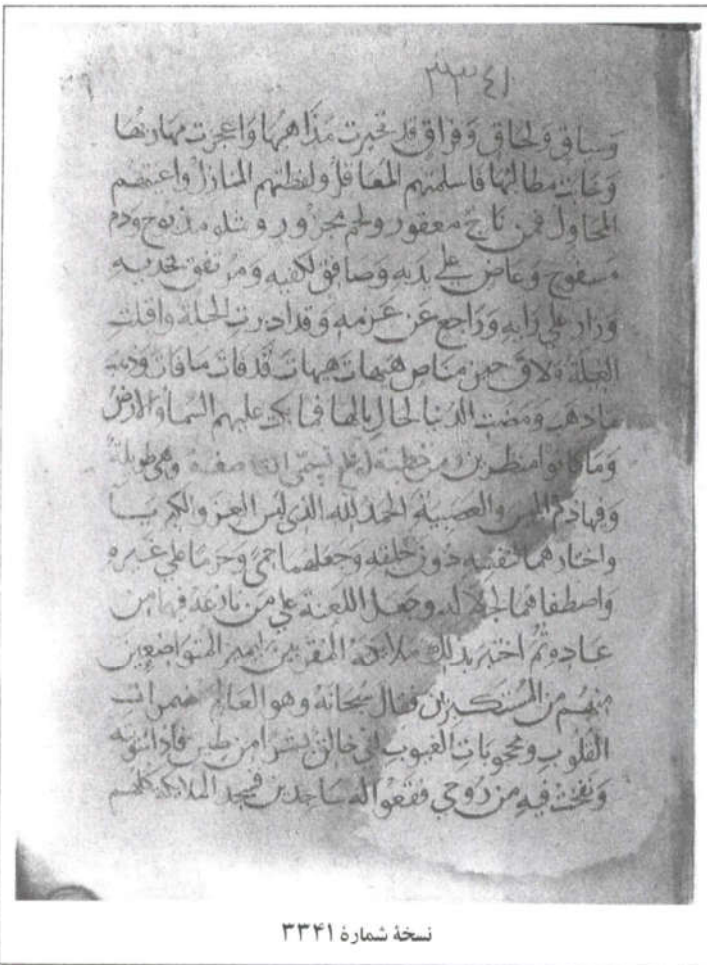 ٣٣٤١
وسياق ولحاق وفراق قد تحيرت مذاهبها واعجزت مهاربها
وخابت مطالبها فاسلمتهم المعاقل ولفظتهم المنازل واعيتهم
المحاول فمن ناج معقور ولحم مجزور وشلو مذبوح ودم
مسفوح وعاض على يديه وصافق لكفيه ومرتفق بخديه
وزار على رايه وراجع عن عزمه وقد ادبرت الحيلة واقبلت
الغيلة ولات حين مناص هيهات هيهات قد فات ما فات وذهب
ما ذهب ومضت الدنيا لحال بالها فما بكت عليهم السما والارض
وما كانوا منظرين ومن خطبة له تسمى القاصعة وهي طويلة
وفيها ذم ابليس والعصبية الحمد لله الذي لبس العز والكبريا
واختارهما لنفسه دون خلقه وجعلهما حمى وحرما على غيره
واصطفاهما لجلاله وجعل اللعنة على من نازعه فيهما من
عباده ثم اختبر بذلك ملايكته المقربين ليميز المتواضعين
منهم من المستكبرين فقال سبحانه وهو العالم بمضمرات
القلوب ومحجوبات الغيوب اني خالق بشرا من طين فاذا سويته
ونفخت فيه من روحي فقعوا له ساجدين فسجد الملايكة كلهم
نسخهٔ شمارهٔ ٣٣۴١